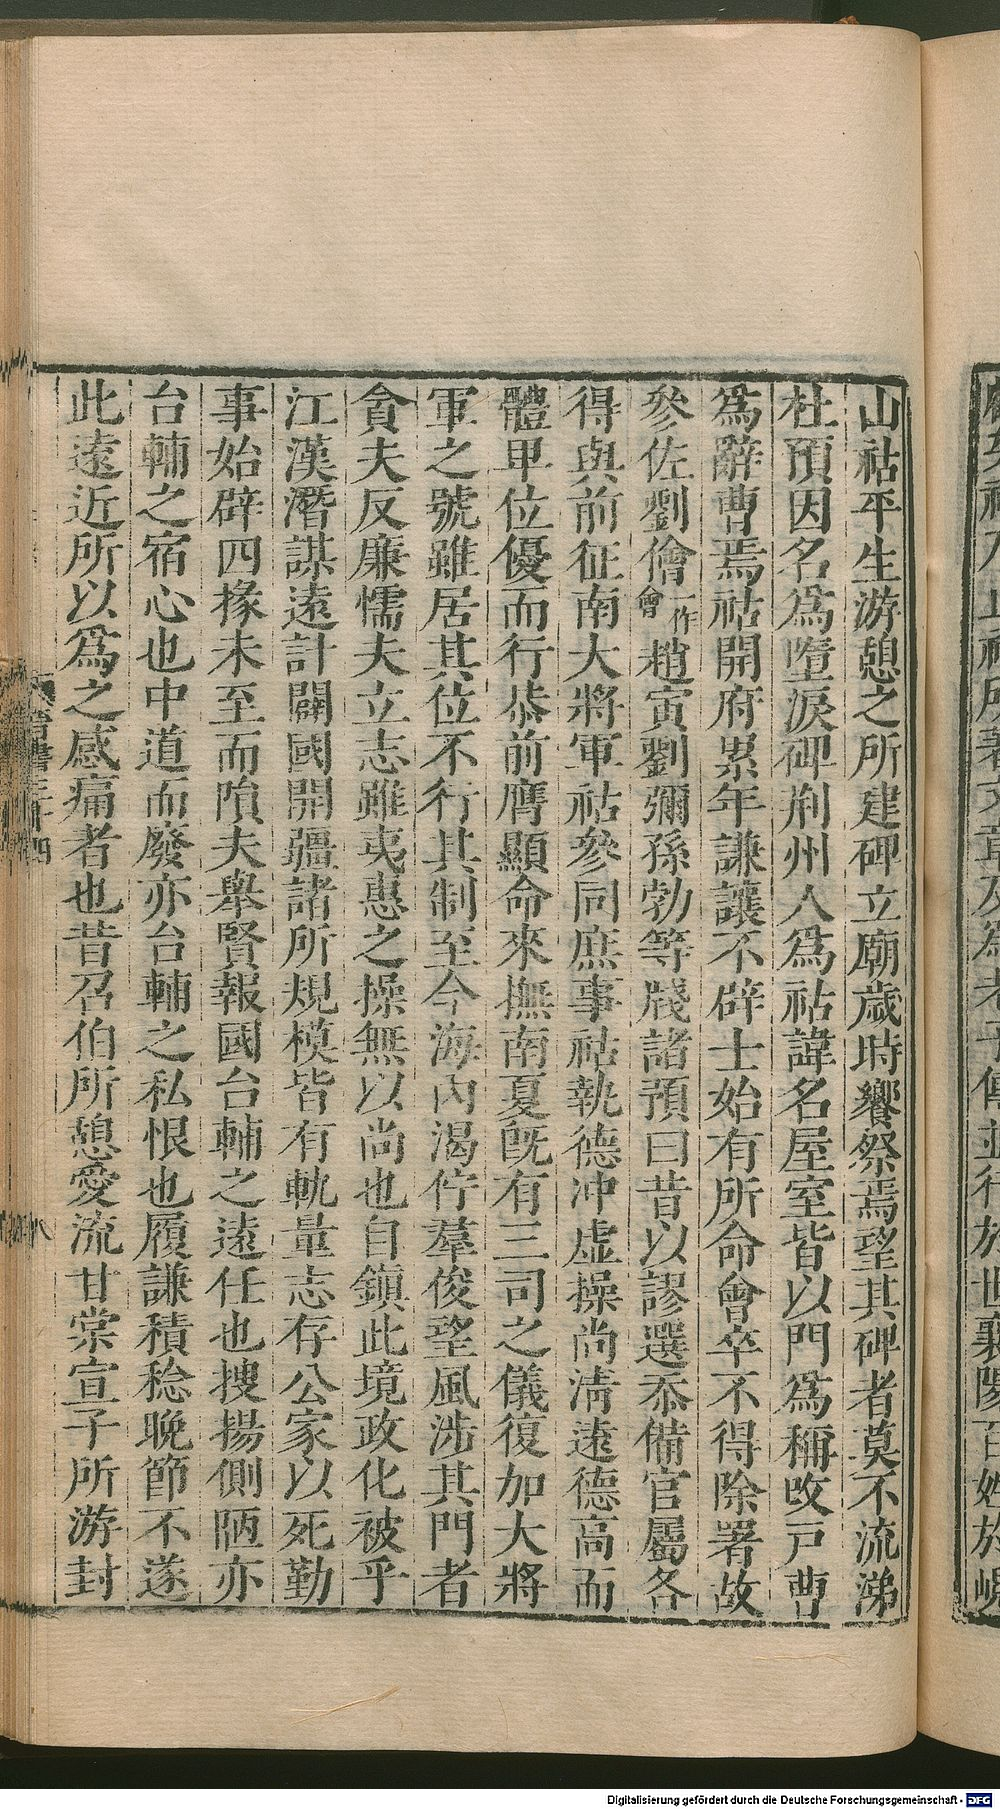 山祜平生游憩之所建碑立廟歲時饗祭焉望其碑者莫不流涕
杜預因名為墮淚碑荆州人為祜諱名屋室皆以門為稱攺戸曹
為辭曹焉祜開府累年謙讓不辟士始有所命會卒不得除署故
參佐劉儈一作會趙寅劉彌孫勃等牋諸預曰昔以謬選忝備官屬各
得與前征南大將軍祜參同庶事祜執德冲虚操尚淸遠德高而
體卑位優而行恭前膺顯命來撫南夏旣有三司之儀復加大將
軍之號雖居其位不行其制至今海内渴佇羣俊望風涉其門者
貪夫反廉懦夫立志雖夷惠之操無以尚也自鎭此境政化被乎
江漢潛謀遠計闢國開疆諸所規模皆有軌量志存公家以死勤
事始辟四掾未至而隕夫舉賢報國台輔之遠任也搜揚側陋亦
台輔之宿心也中道而廢亦台輔之私恨也履謙積稔晚節不遂
此遠近所以為之感痛者也昔召伯所憩愛流甘棠宣子所游封
晉書三十四
八